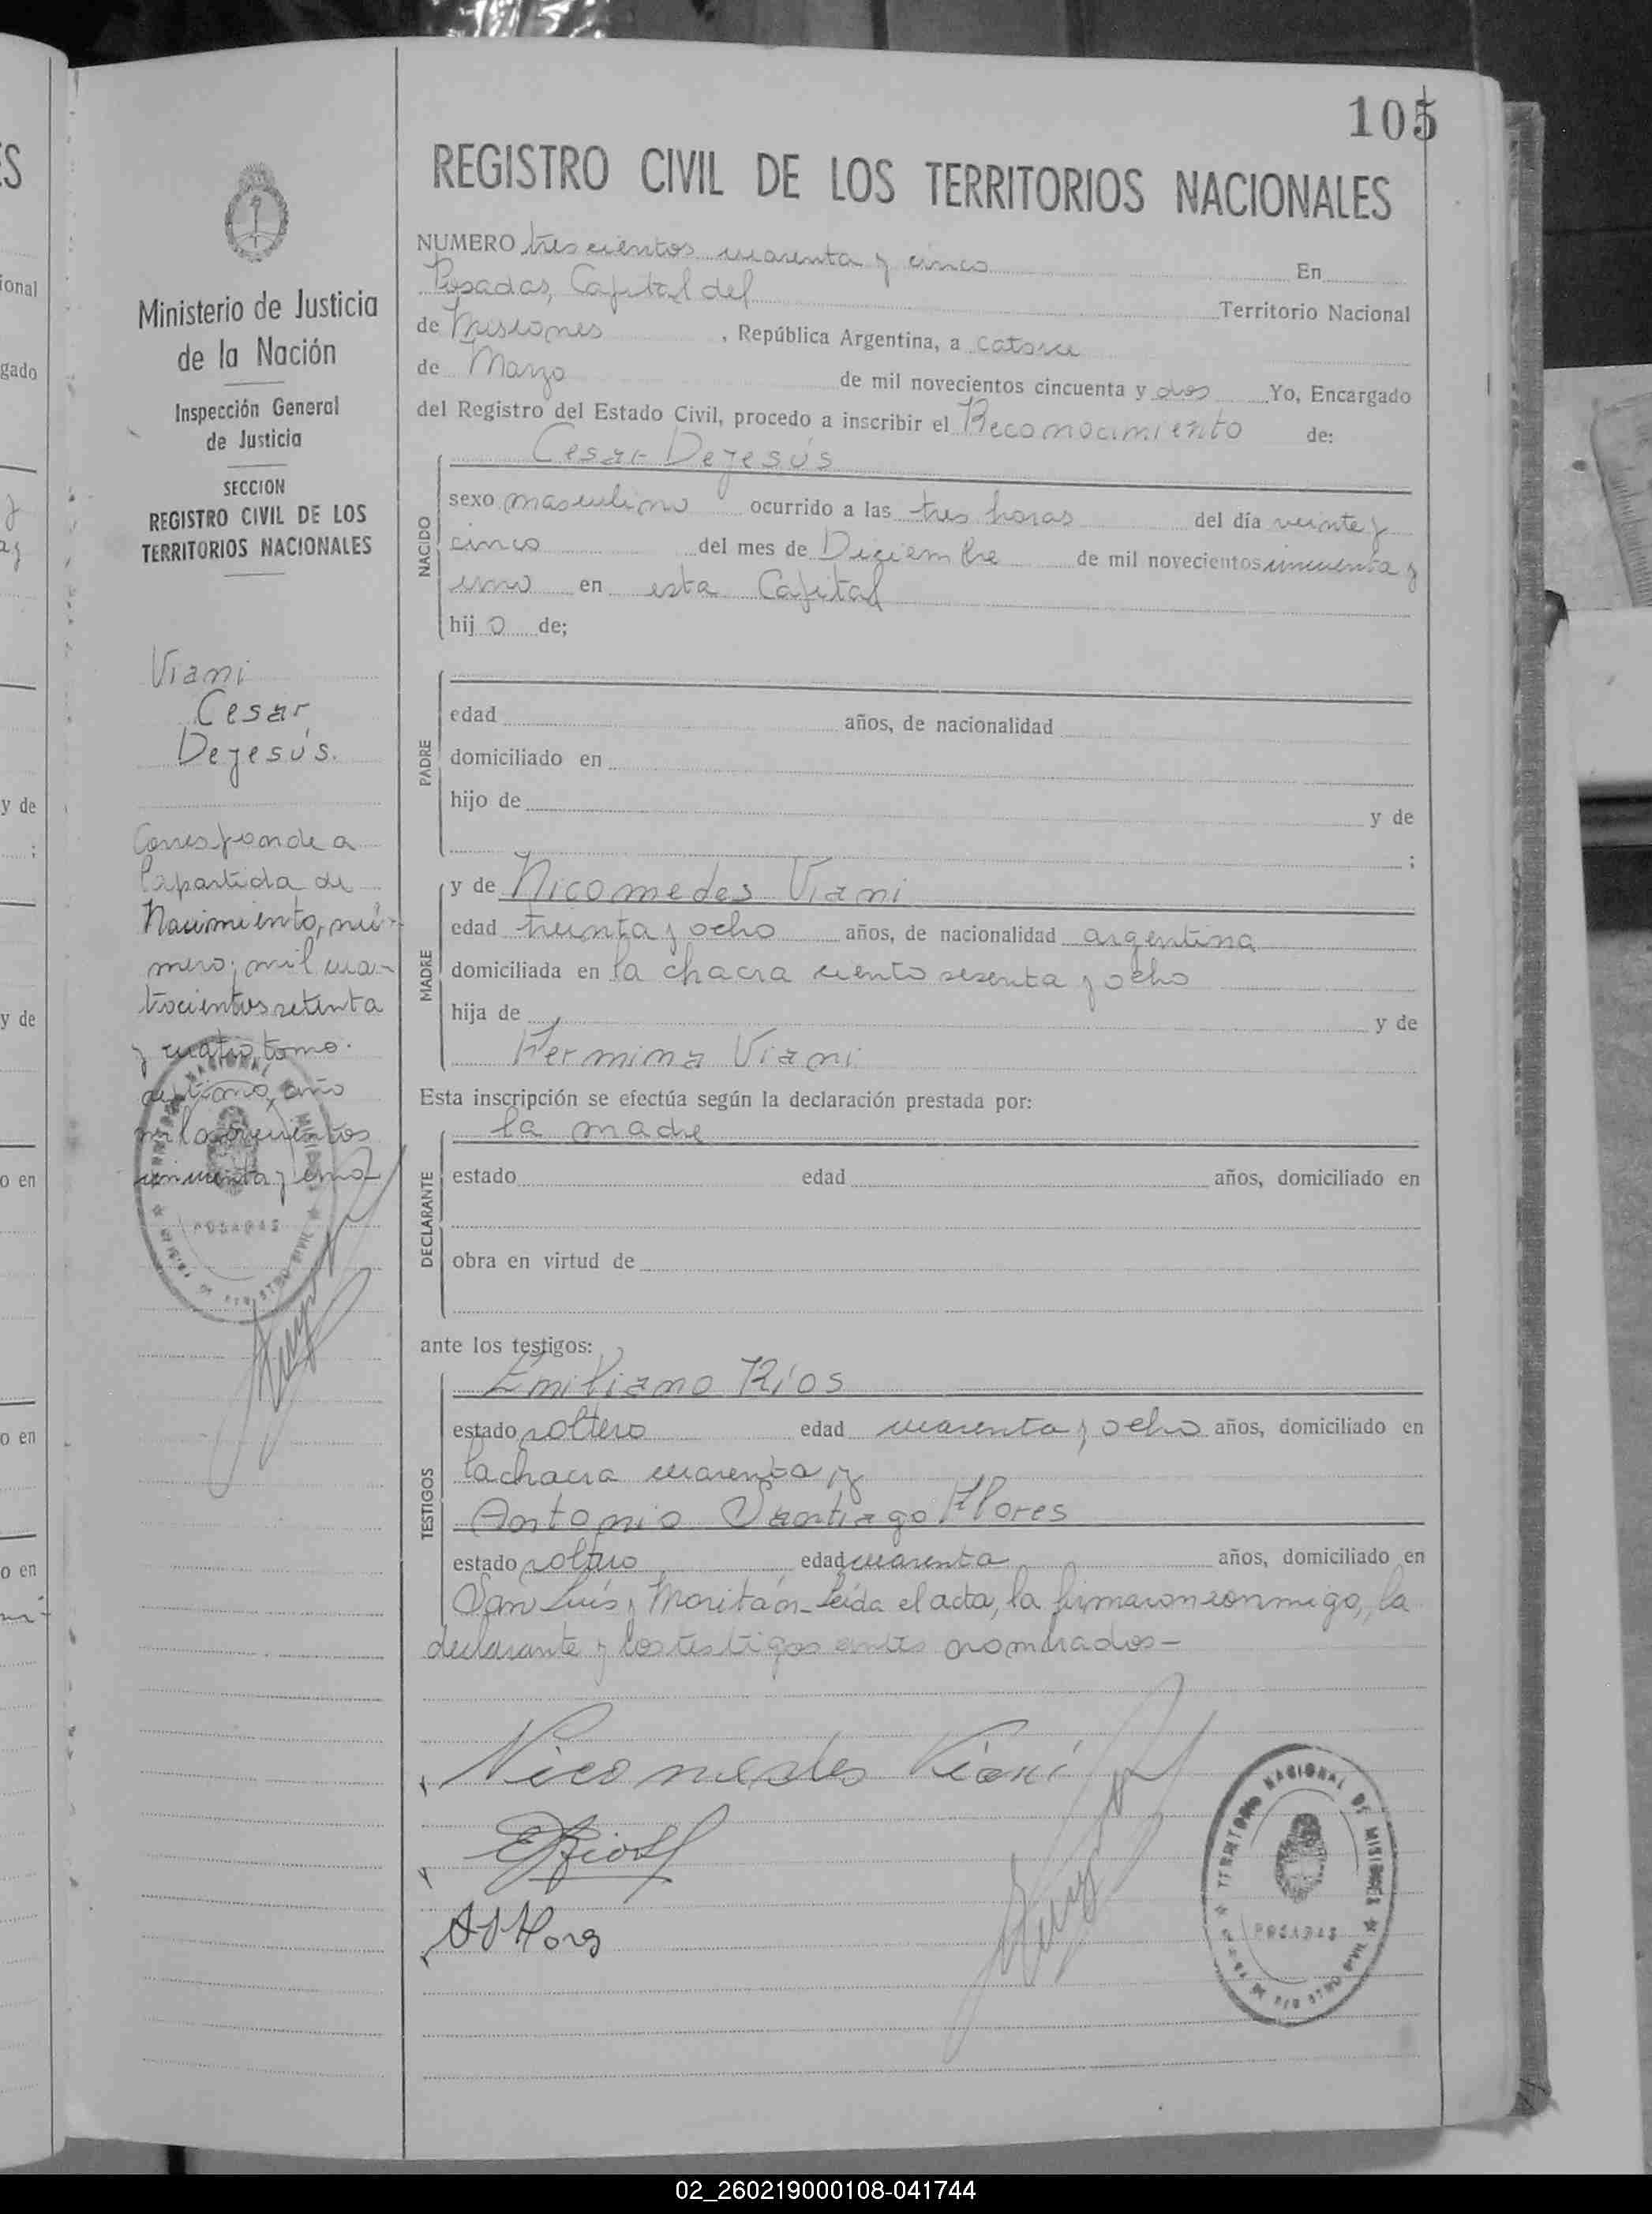 105
REGISTRO CIVIL DE LOS TERRITORIOS NACIONALES
NUMERO trescientos cuarenta y cinco En
Posadas, Capital del Territorio Nacional
de Misiones, República Argentina, a catorce
de Marzo de mil novecientos cincuenta y dos Yo, Encargado
del Registro del Estado Civil, procedo a inscribir el Reconocimiento de:
Cesar Dejesús
NACIDO
sexo masculino ocurrido a las tres horas del día veinte y
cinco del mes de Diciembre de mil novecientos cincuenta y
uno en esta Capital
hijo de;
PADRE
edad años, de nacionalidad
domiciliado en
hijo de y de
;
MADRE
y de Nicomedes Viani
edad treinta y ocho años, de nacionalidad argentina
domiciliada en la chacra ciento sesenta y ocho
hija de y de
Fermina Viani
Esta inscripción se efectúa según la declaración prestada por:
DECLARANTE
la madre
estado edad años, domiciliado en
obra en virtud de
ante los testigos:
TESTIGOS
Emiliano Ríos
estado soltero edad cuarenta y ocho años, domiciliado en
la chacra cuarenta y
Antonio Santiago Flores
estado soltero edad cuarenta años, domiciliado en
San Luís y Moritán - Leída el acta, la firmaron conmigo, la
declarante y los testigos antes nombrados -
Nicomedes Viani
E Rios
A S Flores
TERRITORIO NACIONAL DE MISIONES
POSADAS
Ministerio de Justicia
de la Nación
Inspección General
de Justicia
SECCION
REGISTRO CIVIL DE LOS
TERRITORIOS NACIONALES
Viani
Cesar
Dejesús.
Corresponde a
la partida de
Nacimiento, nú-
mero; mil cua-
trocientos setenta
y cuatro, tomo
septimo, año
mil novecientos
cincuenta y uno
POSADAS
ES
ional
gado
y de
;
y de
o en
o en
o en
02_260219000108-041744